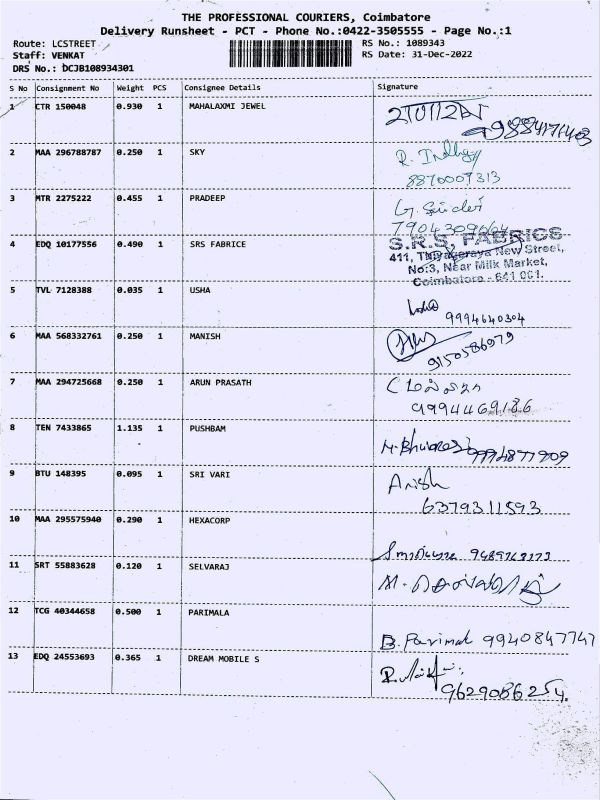 THE PROFESSIONAL COURIERS, Coimbatore
Delivery Runsheet - PCT - Phone No.:0422-3505555 - Page No.:1
Route: LCSTREET RS No.: 1089343
Staff: VENKAT RS Date: 31-Dec-2022
DRS No.: DCJB108934301
S No Consignment No Weight PCS Consignee Details Signature
1 CTR 150048 0.930 1 MAHALAXMI JEWEL
2 MAA 296788787 0.250 1 SKY
8870007313
3 MTR 2275222 0.455 1 PRADEEP
4 EDQ 10177556 0.490 1 SRS FABRICE
S.R.S. FABRICS
411, Thiyageraya New Street,
No:3, Near Milk Market,
Coimbatore - 641 001.
5 TVL 7128388 0.035 1 USHA
9994640304
6 MAA 568332761 0.250 1 MANISH
9150586979
7 MAA 294725668 0.250 1 ARUN PRASATH
9994469186
8 TEN 7433865 1.135 1 PUSHBAM
9994877909
9 BTU 148395 0.095 1 SRI VARI
Anish
6379311593
10 MAA 295575940 0.290 1 HEXACORP
11 SRT 55883628 0.120 1 SELVARAJ
12 TCG 40344658 0.500 1 PARIMALA
B. Parimal 9940847747
13 EDQ 24553693 0.365 1 DREAM MOBILE S
9629086254.